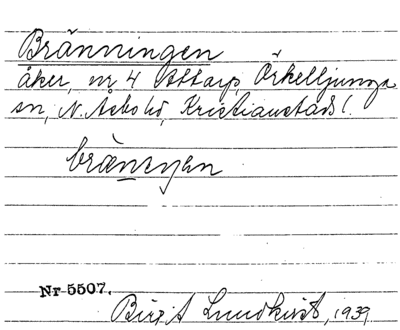 Bränningen
åker, nr 4 Attarp, Örkelljunga
sn, N. Åsbo hd, Kristianstads l.
Nr 5507.
Birgit Lundkvist, 1939